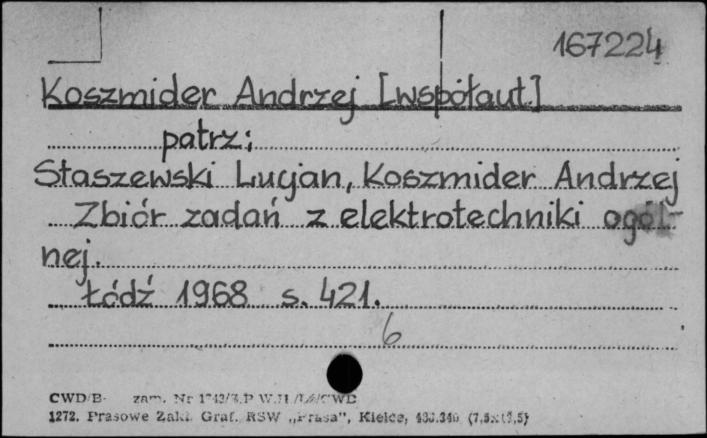 167224
Koszmider Andrzej [współaut.]
patrz:
Staszewski Lucjan, Koszmider Andrzej
Zbiór zadań z elektrotechniki ogól-
nej.
Łódź 1968 s. 421.
6
CWD/B- zam. Nr
1272. Prasowe Zakł. Graf. RSW „Prasa", Kielce,